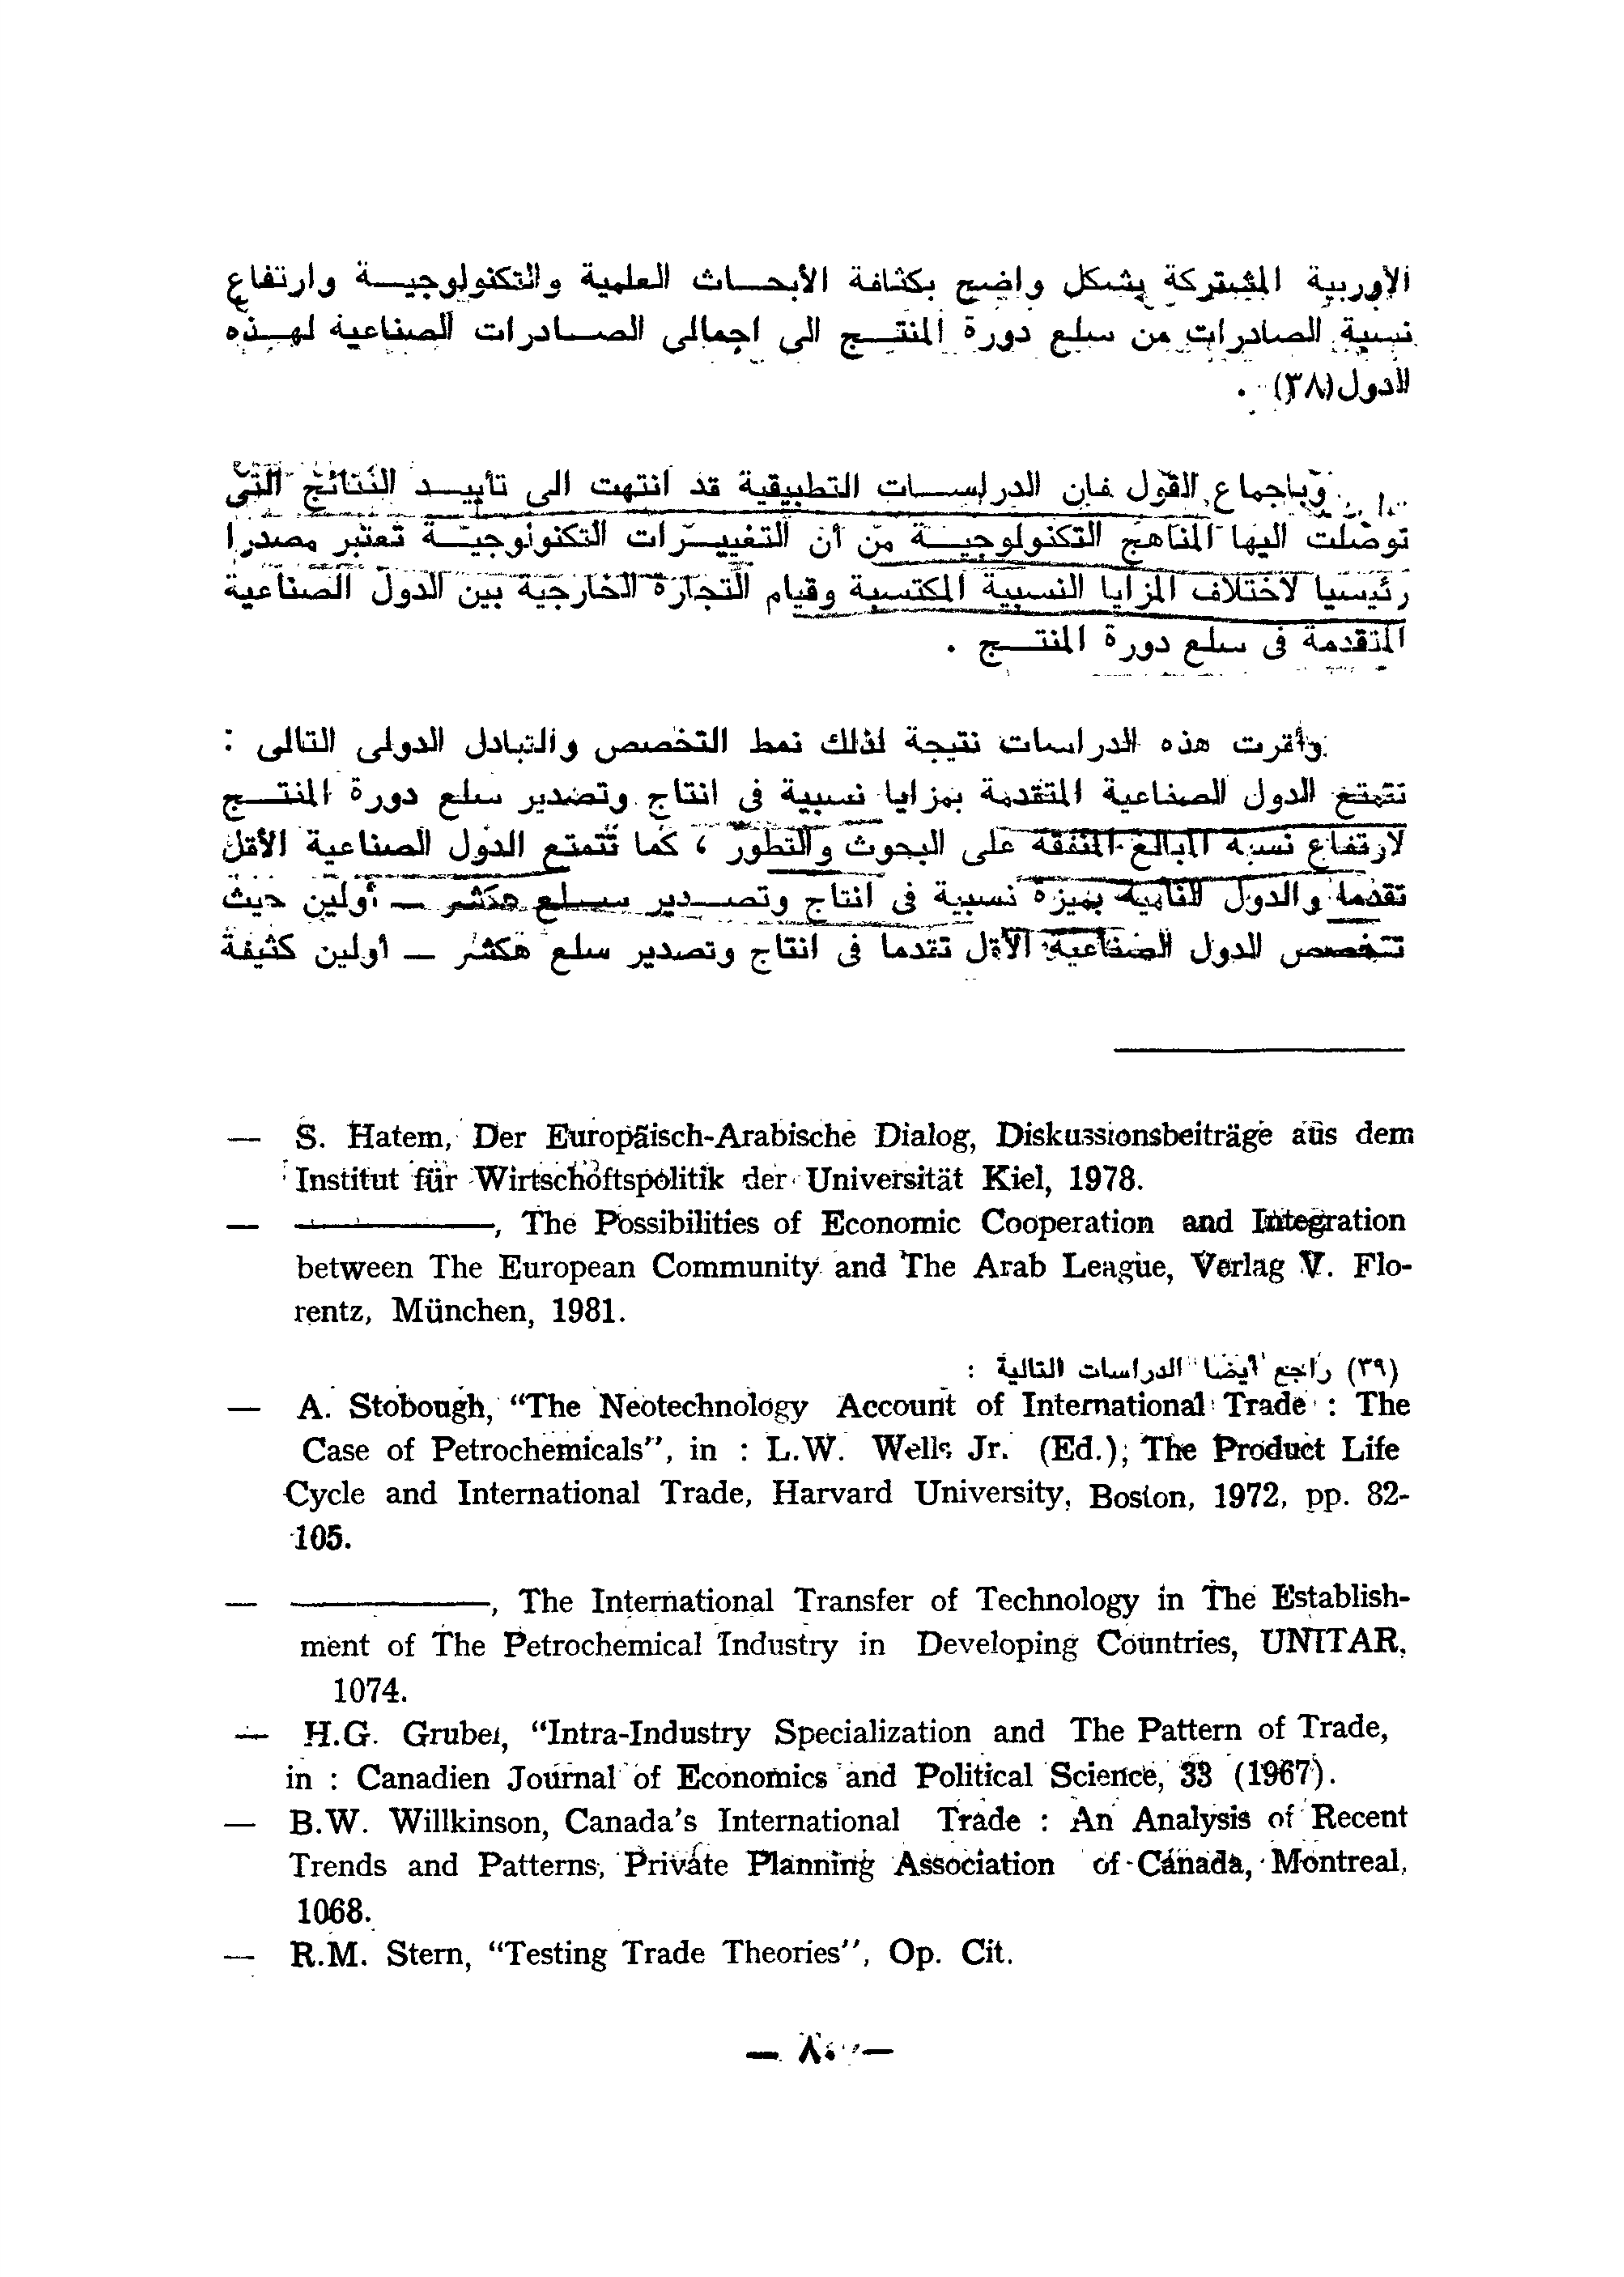 الأوربية المشتركة بشكل واضح بكثافة الأبحاث العلمية والتكنولوجية وارتفاع
نسبة الصادرات من سلع دورة المنتج الى اجمالى الصادرات الصناعية لهذه
الدول(٣٨) .
وباجماع القول فان الدراسات التطبيقية قد انتهت الى تأييد النتائج التى
توصلت اليها المناهج التكنولوجية من أن التغييرات التكنولوجية تعتبر مصدرا
رئيسيا لاختلاف المزايا النسبية المكتسبة وقيام التجارة الخارجية بين الدول الصناعية
المتقدمة فى سلع دورة المنتج .
وأقرت هذه الدراسات نتيجة لذلك نمط التخصص والتبادل الدولى التالى :
تتمتع الدول الصناعية المتقدمة بمزايا نسبية فى انتاج وتصدير سلع دورة المنتج
لارتفاع نسبة المبالغ المنفقة على البحوث والتطور ، كما تتمتع الدول الصناعية الأقل
تقدما والدول النامية بميزة نسبية فى انتاج وتصدير سلع هكشر — أولين حيث
تتخصص الدول الصناعية الأقل تقدما فى انتاج وتصدير سلع هكشر — أولين كثيفة
— S. Hatem, Der Europäisch-Arabische Dialog, Diskussionsbeiträge aus dem
Institut für Wirtschoftspolitik der Universität Kiel, 1978.
— ————, The Possibilities of Economic Cooperation and Integration
between The European Community and The Arab League, Verlag V. Flo-
rentz, München, 1981.
(٣٩) راجع أيضا الدراسات التالية :
— A. Stobough, “The Neotechnology Account of International Trade : The
Case of Petrochemicals”, in : L.W. Wells Jr. (Ed.); The Product Life
Cycle and International Trade, Harvard University, Boston, 1972, pp. 82-
105.
— ————, The International Transfer of Technology in The Establish-
ment of The Petrochemical Industry in Developing Countries, UNITAR,
1074.
— H.G. Gruber, “Intra-Industry Specialization and The Pattern of Trade,
in : Canadien Journal of Economics and Political Science, 33 (1967).
— B.W. Willkinson, Canada's International Trade : An Analysis of Recent
Trends and Patterns, Private Planning Association of Canada, Montreal,
1068.
— R.M. Stern, “Testing Trade Theories”, Op. Cit.
— ٨٠ —